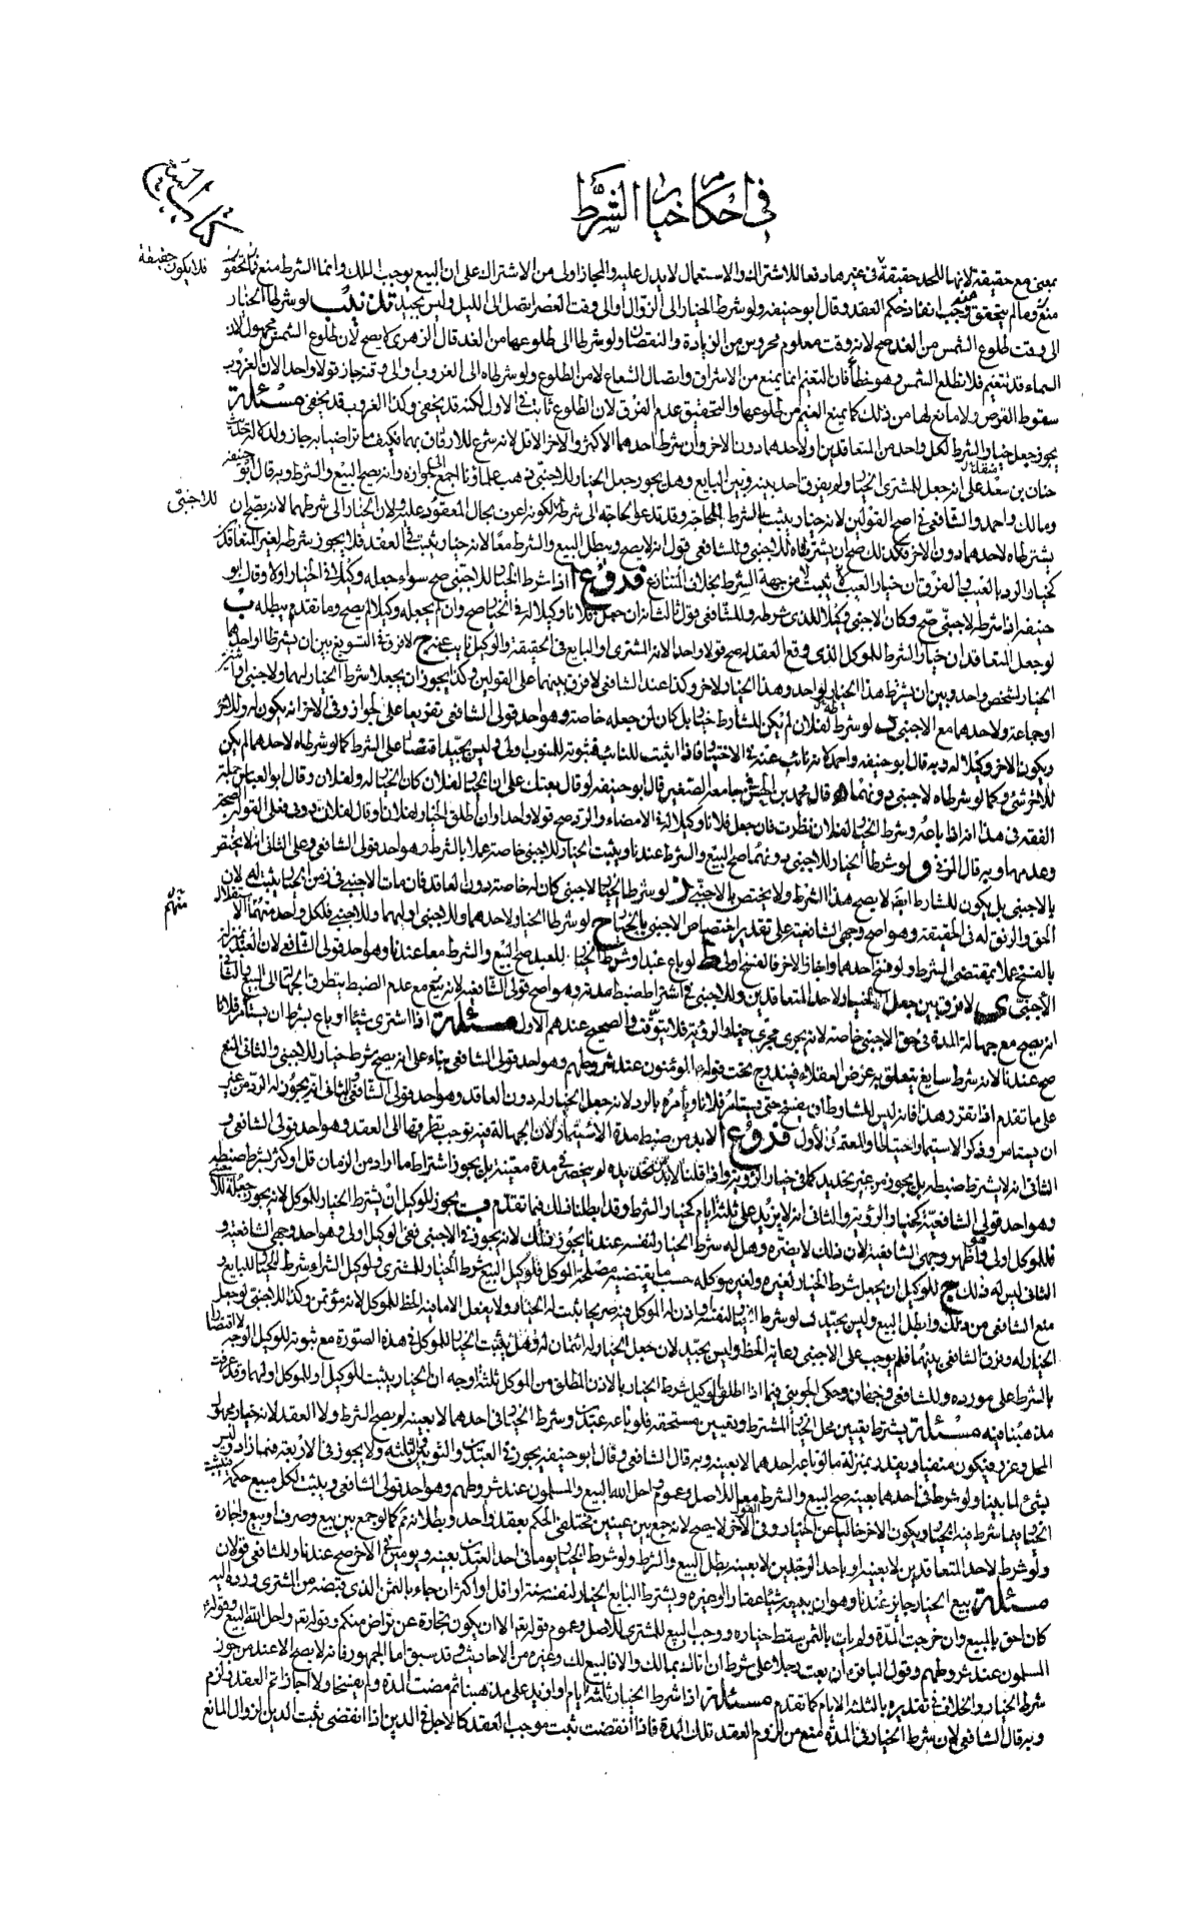 في احكام خيار الشرط
كتاب البيع
بمعنى مع حقيقة لانها للحد حقيقة في غيرها دفعا للاشتراك والاستعمال لا يدل عليه والمجاز اولى من الاشتراك على ان البيع يوجب الملك وانما الشرط منع
فلا يكون حقيقة
منع وما لم يتحقق وجب انفاذ حكم العقد وقال ابو حنيفه ولو شرط الخيار الى الزوال او الى وقت العصر اتصل الى الليل وليس بجيد تذنيب لو شرطا الخيار
الى وقت طلوع الشمس من الغد صح لانه وقت معلوم محروس من الزيادة والنقصان ولو شرطا الى طلوعها من الغد قال الزهرى لا يصح لان طلوع الشمس مجهول لان
السماء قد تتغيم فلا تطلع الشمس وهو خطأ فان التغيم انما يمنع من الاشراق واتصال الشعاع لا من الطلوع ولو شرطاه الى الغروب او الى وقته جاز قولا واحدا لان الغروب
سقوط القرص ولا مانع لها من ذلك كما يمنع الغيم من طلوعها والتحقيق عدم الفرق لان الطلوع ثابت في الاول لكنه قد يخفى وكذا الغروب قد يخفى مسئلة
يجوز جعل خيار الشرط لكل واحد من المتعاقدين ولاحدهما دون الاخر وان يشرط احدهما الاكثر والاخر الاقل لانه شرع للارفاق بهما فكيف ما تراضيا به جاز
حنان بن سعد على انه جعل للمشترى الخيار ولم يفرق احد بينه وبين البايع وهل يجوز جعل الخيار للاجنبى ذهب علماؤنا اجمع الى جوازه وانه يصح البيع والشرط وبه قال ابو حنيفه
ومالك واحمد والشافعى في اصح القولين لانه خيار يثبت بالشرط للحاجة وقد تدعو الحاجة الى شرطه للاجنبى لكونه اعرف بحال المعقود عليه ولان الخيار الى شرطهما لانه يصح ان
يشترطاه لاحدهما دون الاخر فكذلك صح ان يشترطاه للاجنبى وللشافعى قول انه لا يصح ويبطل البيع والشرط معا لانه خيار يثبت في العقد فلا يجوز شرطه لغير المتعاقدين
كخيار الرد بالعيب والفرق ان خيار العيب لا يثبت من جهة الشرط بخلاف المتنازع فروع ا اذا شرط الخيار للاجنبى صح سواء جعله وكيلا في الخيار اولا وقال ابو
حنيفه اذا شرطه لاجنبى صح وكان الاجنبى وكيلا للذى شرطه وللشافعى قول ثالث انه ان جعل فلانا وكيلا له في الخيار صح وان لم يجعله وكيلا لم يصح وما تقدم يبطله ب
لو جعل المتعاقدان خيار الشرط للموكل الذى وقع العقد له صح قولا واحدا لانه المشترى او البايع في الحقيقة والوكيل نايب عنه ج لا فرق في التسويغ بين ان يشرطا واحدا
الخيار لشخص واحد وبين ان يشرط هذا الخيار لواحد وهذا الخيار لاخر وكذا عند الشافعى لا فرق بينهما على القولين وكذا يجوز ان يجعلا شرط الخيار لهما ولاجنبى
او جماعة ولاحدهما مع الاجنبى د لو شرطه لفلان لم يكن للشارط خيار بل كان لمن جعله خاصة وهو احد قولى الشافعى تفريعا على الجواز وفي الاخر انه يكون له وللاخر
ويكون الاخر وكيلا له وبه قال ابو حنيفه واحمد
للاخر شئ وكما لو شرطاه لاجنبى دونهما ه قال محمد بن الحسن في جامعه الصغير قال ابو حنيفه لو قال بعتك على ان الخيار لفلان كان الخيار له ولفلان وقال ابو العباس
الفقه في هذا انه اذا باعه وشرط الخيار لفلان نظرت فان جعل فلانا وكيلا له في الامضاء والرد صح قولا واحدا وان اطلق الخيار لفلان او قال لفلان دونى فعلى القولين
وبه قال المزنى و لو شرطا الخيار للاجنبى دونهما صح البيع والشرط عندنا ويثبت الخيار للاجنبى خاصة عملا بالشرط وهو احد قولى الشافعى وعلى الثانى انه لا يختص
بالاجنبى بل يكون للشارط ايضا لا يصح هذا الشرط ولا يختص بالاجنبى ز لو شرطا الخيار للاجنبى كان له خاصة دون العاقد فان مات الاجنبى في زمن الخيار يثبت له لان
الحق والرفق له في الحقيقة وهو اصح وجهى الشافعية على تقدير اختصاص الاجنبى بالخيار ح لو شرطا الخيار لاحدهما وللاجنبى او لهما وللاجنبى فلكل واحد منهم الاستقلال
بالفسخ عملا بمقتضى الشرط ولو فسخ احدهما واجاز الاخر فالفسخ اولى ط لو باع عبدا وشرط الخيار للعبد صح البيع والشرط معا عندنا وهو احد قولى الشافعى لان العبد بمنزلة
الاجنبى ى لا فرق بين جعل الخيار لاحد المتعاقدين وللاجنبى في اشتراط ضبط مدته وهو اصح قولى الشافعيه لانه بيع مع عدم الضبط يتطرق الجهالة الى البيع والثانى
انه يصح مع جهالة المدة في حق الاجنبى خاصة لانه يجرى مجرى خيار الرؤية فلا يتوقت والصحيح عندهم الاول مسئلة اذا اشترى شيئا او باع بشرط ان يستامر فلانا
صح عندنا لانه شرط سايغ يتعلق به غرض العقلاء فيندرج تحت قوله المؤمنون عند شروطهم وهو احد قولى الشافعى بناء على انه يصح شرط خيار للاجنبى والثانى المنع
على ما تقدم اذا تقرر هذا فانه ليس للمشارط ان يفسخ حتى يستامر فلانا ويأمره بالرد لانه جعل الخيار له دون العاقد وهو احد قولى الشافعى الثانى انه يجوز له الرد من غير
ان يستامر وذكر الاستيمار احتياطا والمعتمد الاول فروع ا لابد من ضبط مدة الاستيمار لان الجهالة فيه توجب تطرقها الى العقد وهو احد قولى الشافعى و
الثانى انه لا يشترط ضبطه بل يجوز من غير تحديد كما في خيار الرؤية واذا قلنا لابد من تحديده لم ينحصر في مدة معينة بل يجوز اشتراط ما اراد من الزمان قل او كثر بشرط ضبطه
وهو احد قولى الشافعية كخيار الرؤية والثانى انه لا يزيد على ثلثة ايام كخيار الشرط وقد ابطلنا ذلك فيما تقدم ب يجوز للوكيل ان يشترط الخيار للموكل لانه يجوز
فللموكل اولى وهو اظهر وجهى الشافعية لان ذلك لا يضره وهل له شرط الخيار لنفسه عندنا يجوز ذلك لانه يجوز في الاجنبى ففى الوكيل اولى وهو احد وجهى الشافعية و
الثانى ليس له ذلك ج للوكيل ان يجعل شرط الخيار لغيره ولغير موكله حسب ما يقتضيه مصلحة الموكل فلوكيل البيع شرط الخيار للمشترى ولوكيل الشراء شرط الخيار للبايع و
منع الشافعى من ذلك وابطل البيع وليس بجيد د لو شرط الخيار لنفسه او اذن له الموكل فيه صريحا ثبت له الخيار ولا يفعل الا ما فيه الحظ للموكل لانه مؤتمن وكذا للاجنبى لو جعل
الخيار له وفرق الشافعى بينهما فلم يوجب على الاجنبى رعاية الحظ وليس بجيد لان جعل الخيار له ائتمان له وهل يثبت الخيار للموكل في هذه الصورة مع ثبوته للوكيل الوجه لا اقتصارا
بالشرط على مورده وللشافعى وجهان وحكى الجوينى فيما اذا اطلق الوكيل شرط الخيار بالاذن المطلق من الموكل ثلثة اوجه ان الخيار يثبت للوكيل او للموكل او لهما وقد عرفت
مذهبنا فيه مسئلة يشترط تعيين محل الخيار المشترط وتعيين مستحقه فلو باعه عبدين وشرط الخيار في احدهما لا بعينه لم يصح الشرط ولا العقد لانه خيار مجهول
المحل وغرر فيكون منفيا ويقدر بمنزلة ما لو باعه احدهما لا بعينه وبه قال الشافعى وقال ابو حنيفه يجوز في العبدين والثوبين والثلثه ولا يجوز في الاربعة فما زاد وليس
بشئ لما بينا ولو شرط في احدهما بعينه صح البيع والشرط معا للاصل وعموم واحل الله البيع والمسلمون عند شروطهم وهو احد قولى الشافعى ويثبت لكل مبيع حكمه
الخيار فيما شرط فيه الخيار ويكون الاخر خاليا عن اختيار وفي القول الاخر لا يصح لانه جمع بين عينين مختلفى الحكم بعقد واحد وبطلانه ثم كما لو جمع بين بيع وصرف او بيع واجارة
ولو شرط لاحد المتعاقدين لا بعينه او باحد الرجلين لا بعينه بطل البيع والشرط ولو شرط الخيار يوما في احد العبدين بعينه ويومين في الاخر صح عندنا وللشافعى قولان
مسئلة بيع الخيار جايز عندنا وهو ان يبيعه شيئا عقارا او غيره ويشترط البايع الخيار لنفسه سنة او اقل او اكثر ان جاء بالثمن الذى قبضه من المشترى ورده اليه
كان احق بالمبيع وان خرجت المدة ولم يات بالثمن سقط خياره ووجب البيع للمشترى للاصل وعموم قوله تعالى الا ان يكون تجارة عن تراض منكم وقوله تعالى واحل الله البيع وقوله
المسلمون عند شروطهم وقول الباقر ان بعت رجلا على شرط ان اتاك بمالك والا فالبيع لك وغيره من الاحاديث وقد سبق اما الجمهور فانه لا يصح الا عند من جوز
شرط الخيار والخلاف في تقديره بالثلثة الايام كما تقدم مسئلة اذا شرط الخيار ثلثة ايام او ازيد على مذهبنا ثم مضت المدة ولم يفسخا ولا اجازا تم العقد ولزم
وبه قال الشافعى لان شرط الخيار في المدة منع من لزوم العقد تلك المدة فاذا انقضت ثبت موجب العقد كالاجل في الدين اذا انقضى يثبت الدين لزوال المانع